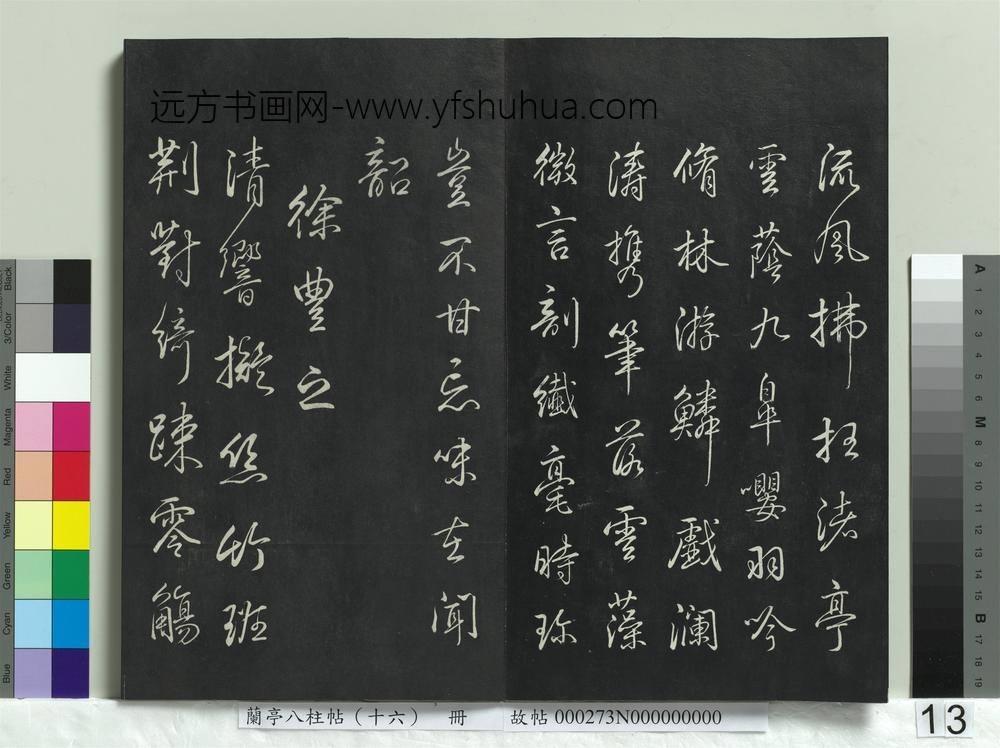 远方书画网-www.yfshuhua.com
流風拂枉渚亭
雲蔭九皐嚶羽吟
脩林游鱗戲瀾
濤携筆落雲藻
微言剖纖毫時珎
豈不甘忘味在聞
韶
徐豐之
清響擬絲竹班
荆對綺踈零觴
蘭亭八柱帖（十六） 冊 故帖 000273N000000000
13
Black
3/Color
White
Magenta
Red
Yellow
Green
Cyan
Blue
A 1 2 3 4 5 6 M 8 9 10 11 12 13 14 15 B 17 18 19